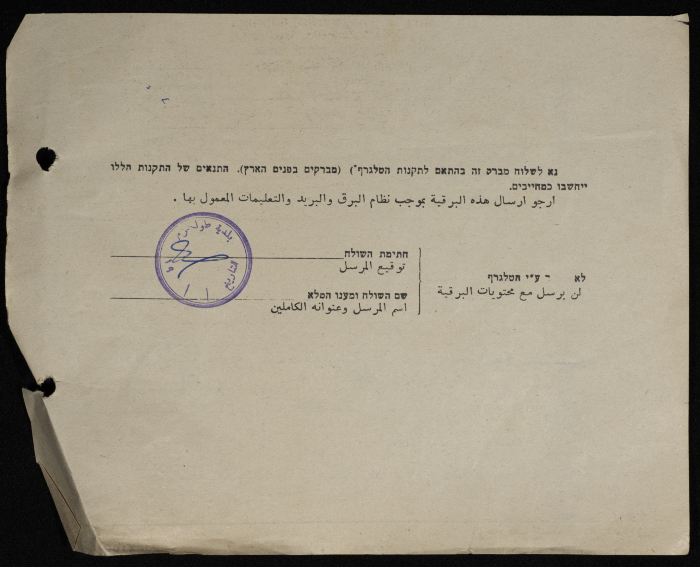 נא לשלוח מברק זה בהתאם לתקנות הטלגרף*) (מברקים בפנים הארץ). התנאים של התקנות הללו
ייחשבו כמחייבים.
ارجو ارسال هذه البرقية بموجب نظام البرق والبريد والتعليمات المعمول بها .
חתימת השולח
توقيع المرسل
שם השולח ומענו המלא
اسم المرسل وعنوانه الكاملين
לא ר ע״י הטלגרף
لن يرسل مع محتويات البرقية
بلدية طولكرم
التاريخ